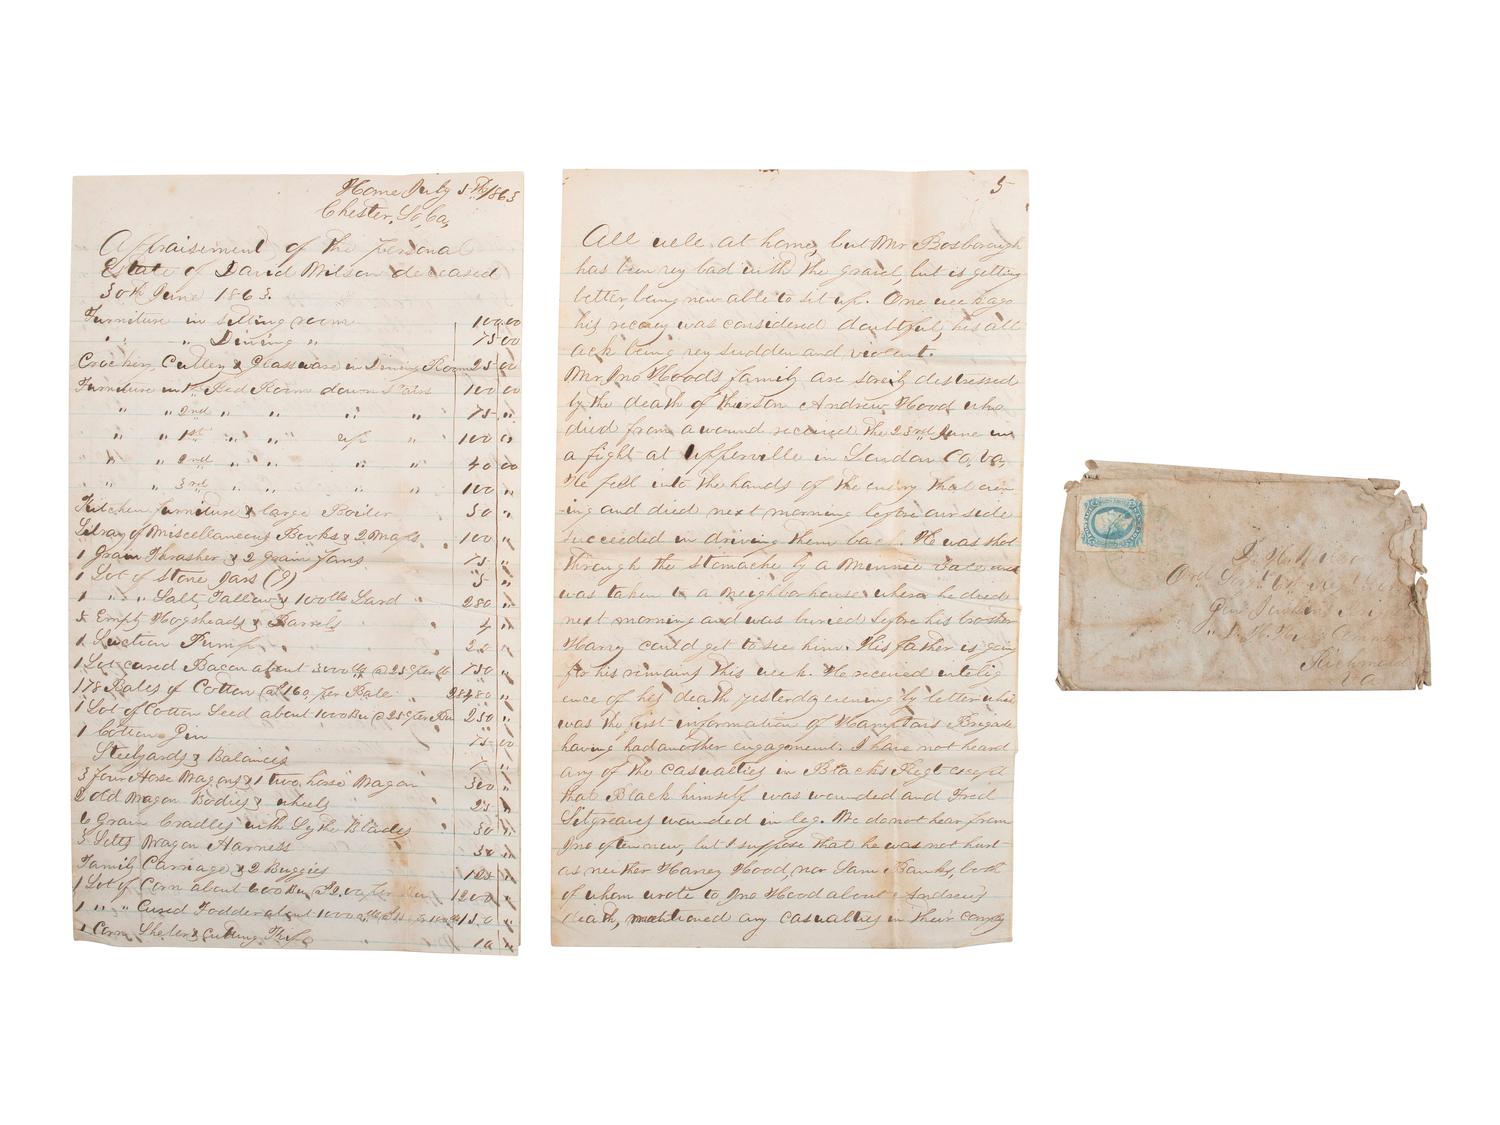 Home July 5th 1863
Chester, So, Ca,
Appraisement of the personal
Estate of David Wilson deceased
30th June 1863.
Furniture in sitting room 100.00
" " Dining " 75 00
Crockery Cutlery & Glassware in Dining Room 25 00
Furniture in 1st Bed Room down Stairs 100 00
" " 2nd " " " " 75 "
" " 1st " " up " 100 0
" " 2nd " " " " 40 00
" " 3rd " " " " 100 "
Kitchen furniture & large Boiler 50 "
Library of Miscellaneous Books & 2 Maps 100 "
1 Grain Thrasher & 2 Grain fans 75 "
1 Lot of Stone Jars (9) 5 "
1 " " Salt, Tallow & 100 lbs Lard 280 "
5 Empty Hogsheads & Barrels 4 "
1 Suction Pump 25 "
1 Lot cured Bacon about 3000 lb @ 25¢ per lb 750 "
178 Bales of Cotton @ $160, per Bale 28480 "
1 Lot of Cotton Seed about 1000 Bu @ 25¢ per Bu 250 "
1 Cotton Gin 75 00
Steelyards & Balances "
3 four Horse Wagons & 1 two horse Wagon 300 "
2 old Wagon Bodies & wheels 25 "
6 Grain Cradles with Sythe Blades 30 "
5 Setts Wagon Harness 30 "
Family Carriage & 2 Buggies 125 "
1 Lot of Corn about 600 Bu @ 2.00 per Bu 1200 "
1 " " Cured Fodder about 10000 150 "
1 Corn Sheler & Cutting 10 "
5
All well at home, but Mr Bosborough
has been very bad with the gravel, but is getting
better, being now able to sit up. One week ago
his recovey was considered doubtful, his att
ack being very sudden and violent.
Mr Jno Hood's family are sorely destressed
by the death of their son Andrew Hood who
died from a wound received the 23rd June in
a fight at Upperville in Loudon Co, Va,
He fell into the hands of the enemy that even
-ing and died next morning before our side
succeeded in driving them back. He was shot
through the stomache by a Minnie Ball and
was taken to a neighbor house where he died
next morning and was buried before his brother
Harvy could get to see him. His father is going
for his remains this week. He received intelig
ence of his death yesterday evening by letter which
was the first information of Hampton's Brigade
having had another engagement. I have not heard
any of the casualties in Blacks Regt except
that Black himself was wounded and Fred
Sitgreaves wounded in leg. We do not hear from
Jno often now, but I suppose that he was not hurt
as neither Harvey Hood, nor Sam Banks, both
of whom wrote to Jno Hood about Andrews
death, mentioned any casualties in their compy
J. H. Wilson
Ord Sergt 6th Regt
Gen Jenkins Brigade
Richmond
Va